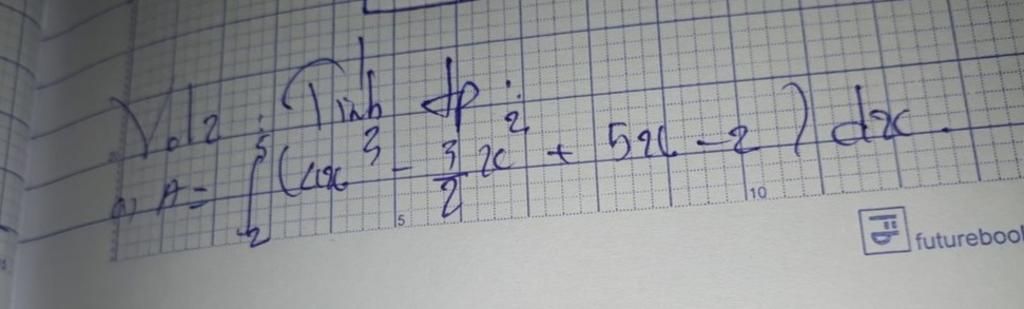 Vd2 : Tính tp :
a, A = ∫₂⁵ (4x³ - 3/2 x² + 5x - 2) dx.
5
10
futurebook